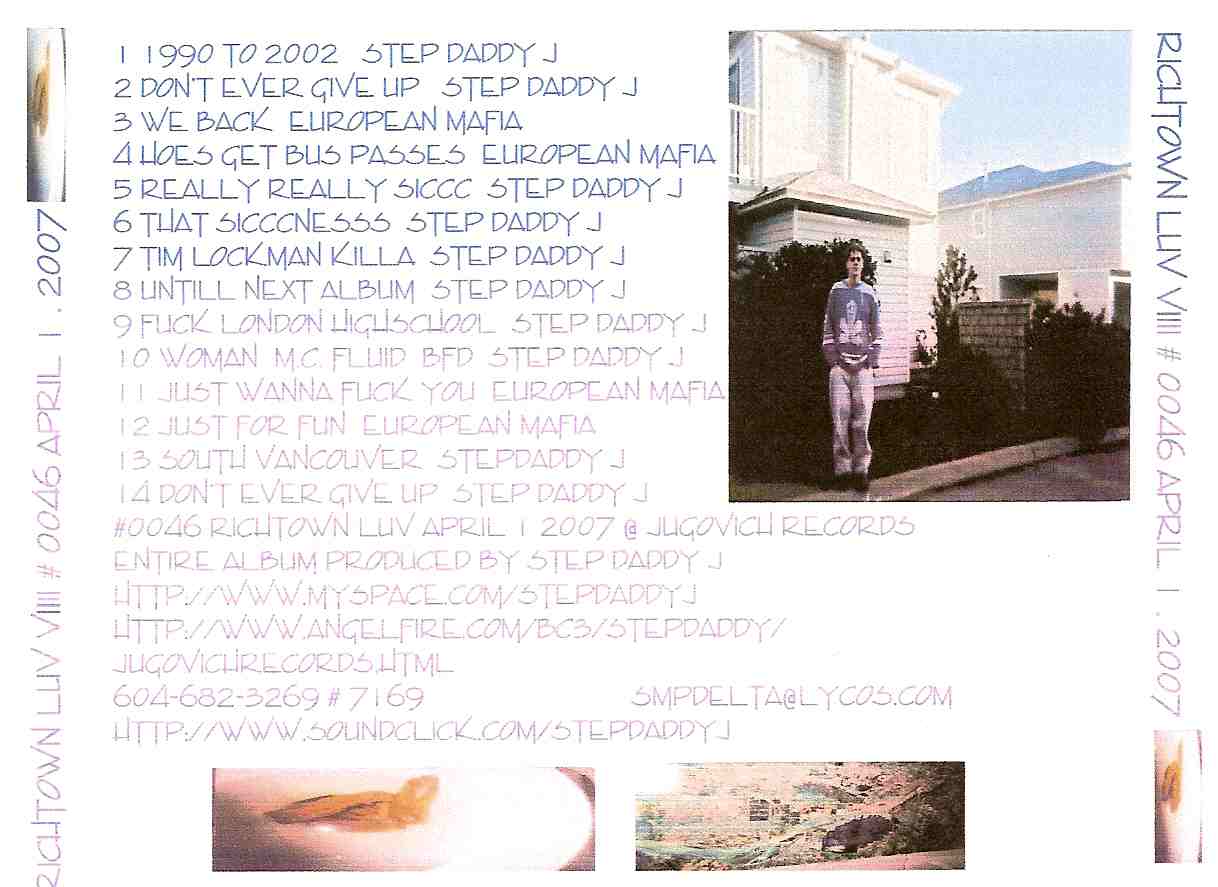 1 1990 TO 2002 STEP DADDY J
2 DON'T EVER GIVE UP STEP DADDY J
3 WE BACK EUROPEAN MAFIA
4 HOES GET BUS PASSES EUROPEAN MAFIA
5 REALLY REALLY SICCC STEP DADDY J
6 THAT SICCCNESSS STEP DADDY J
7 TIM LOCKMAN KILLA STEP DADDY J
8 UNTILL NEXT ALBUM STEP DADDY J
9 FUCK LONDON HIGHSCHOOL STEP DADDY J
10 WOMAN M.C. FLUID BFD STEP DADDY J
11 JUST WANNA FUCK YOU EUROPEAN MAFIA
12 JUST FOR FUN EUROPEAN MAFIA
13 SOUTH VANCOUVER STEPDADDY J
14 DON'T EVER GIVE UP STEP DADDY J
#0046 RICHTOWN LUV APRIL 1 2007 @ JUGOVICH RECORDS
ENTIRE ALBUM PRODUCED BY STEP DADDY J
HTTP://WWW.MYSPACE.COM/STEPDADDYJ
HTTP://WWW.ANGELFIRE.COM/BC3/STEPDADDY/
JUGOVICHRECORDS.HTML
604-682-3269 # 7169 SMPDELTA@LYCOS.COM
HTTP://WWW.SOUNDCLICK.COM/STEPDADDYJ
RICHTOWN LUV VIIII # 0046 APRIL 1. 2007
RICHTOWN LUV VIIII # 0046 APRIL 1. 2007